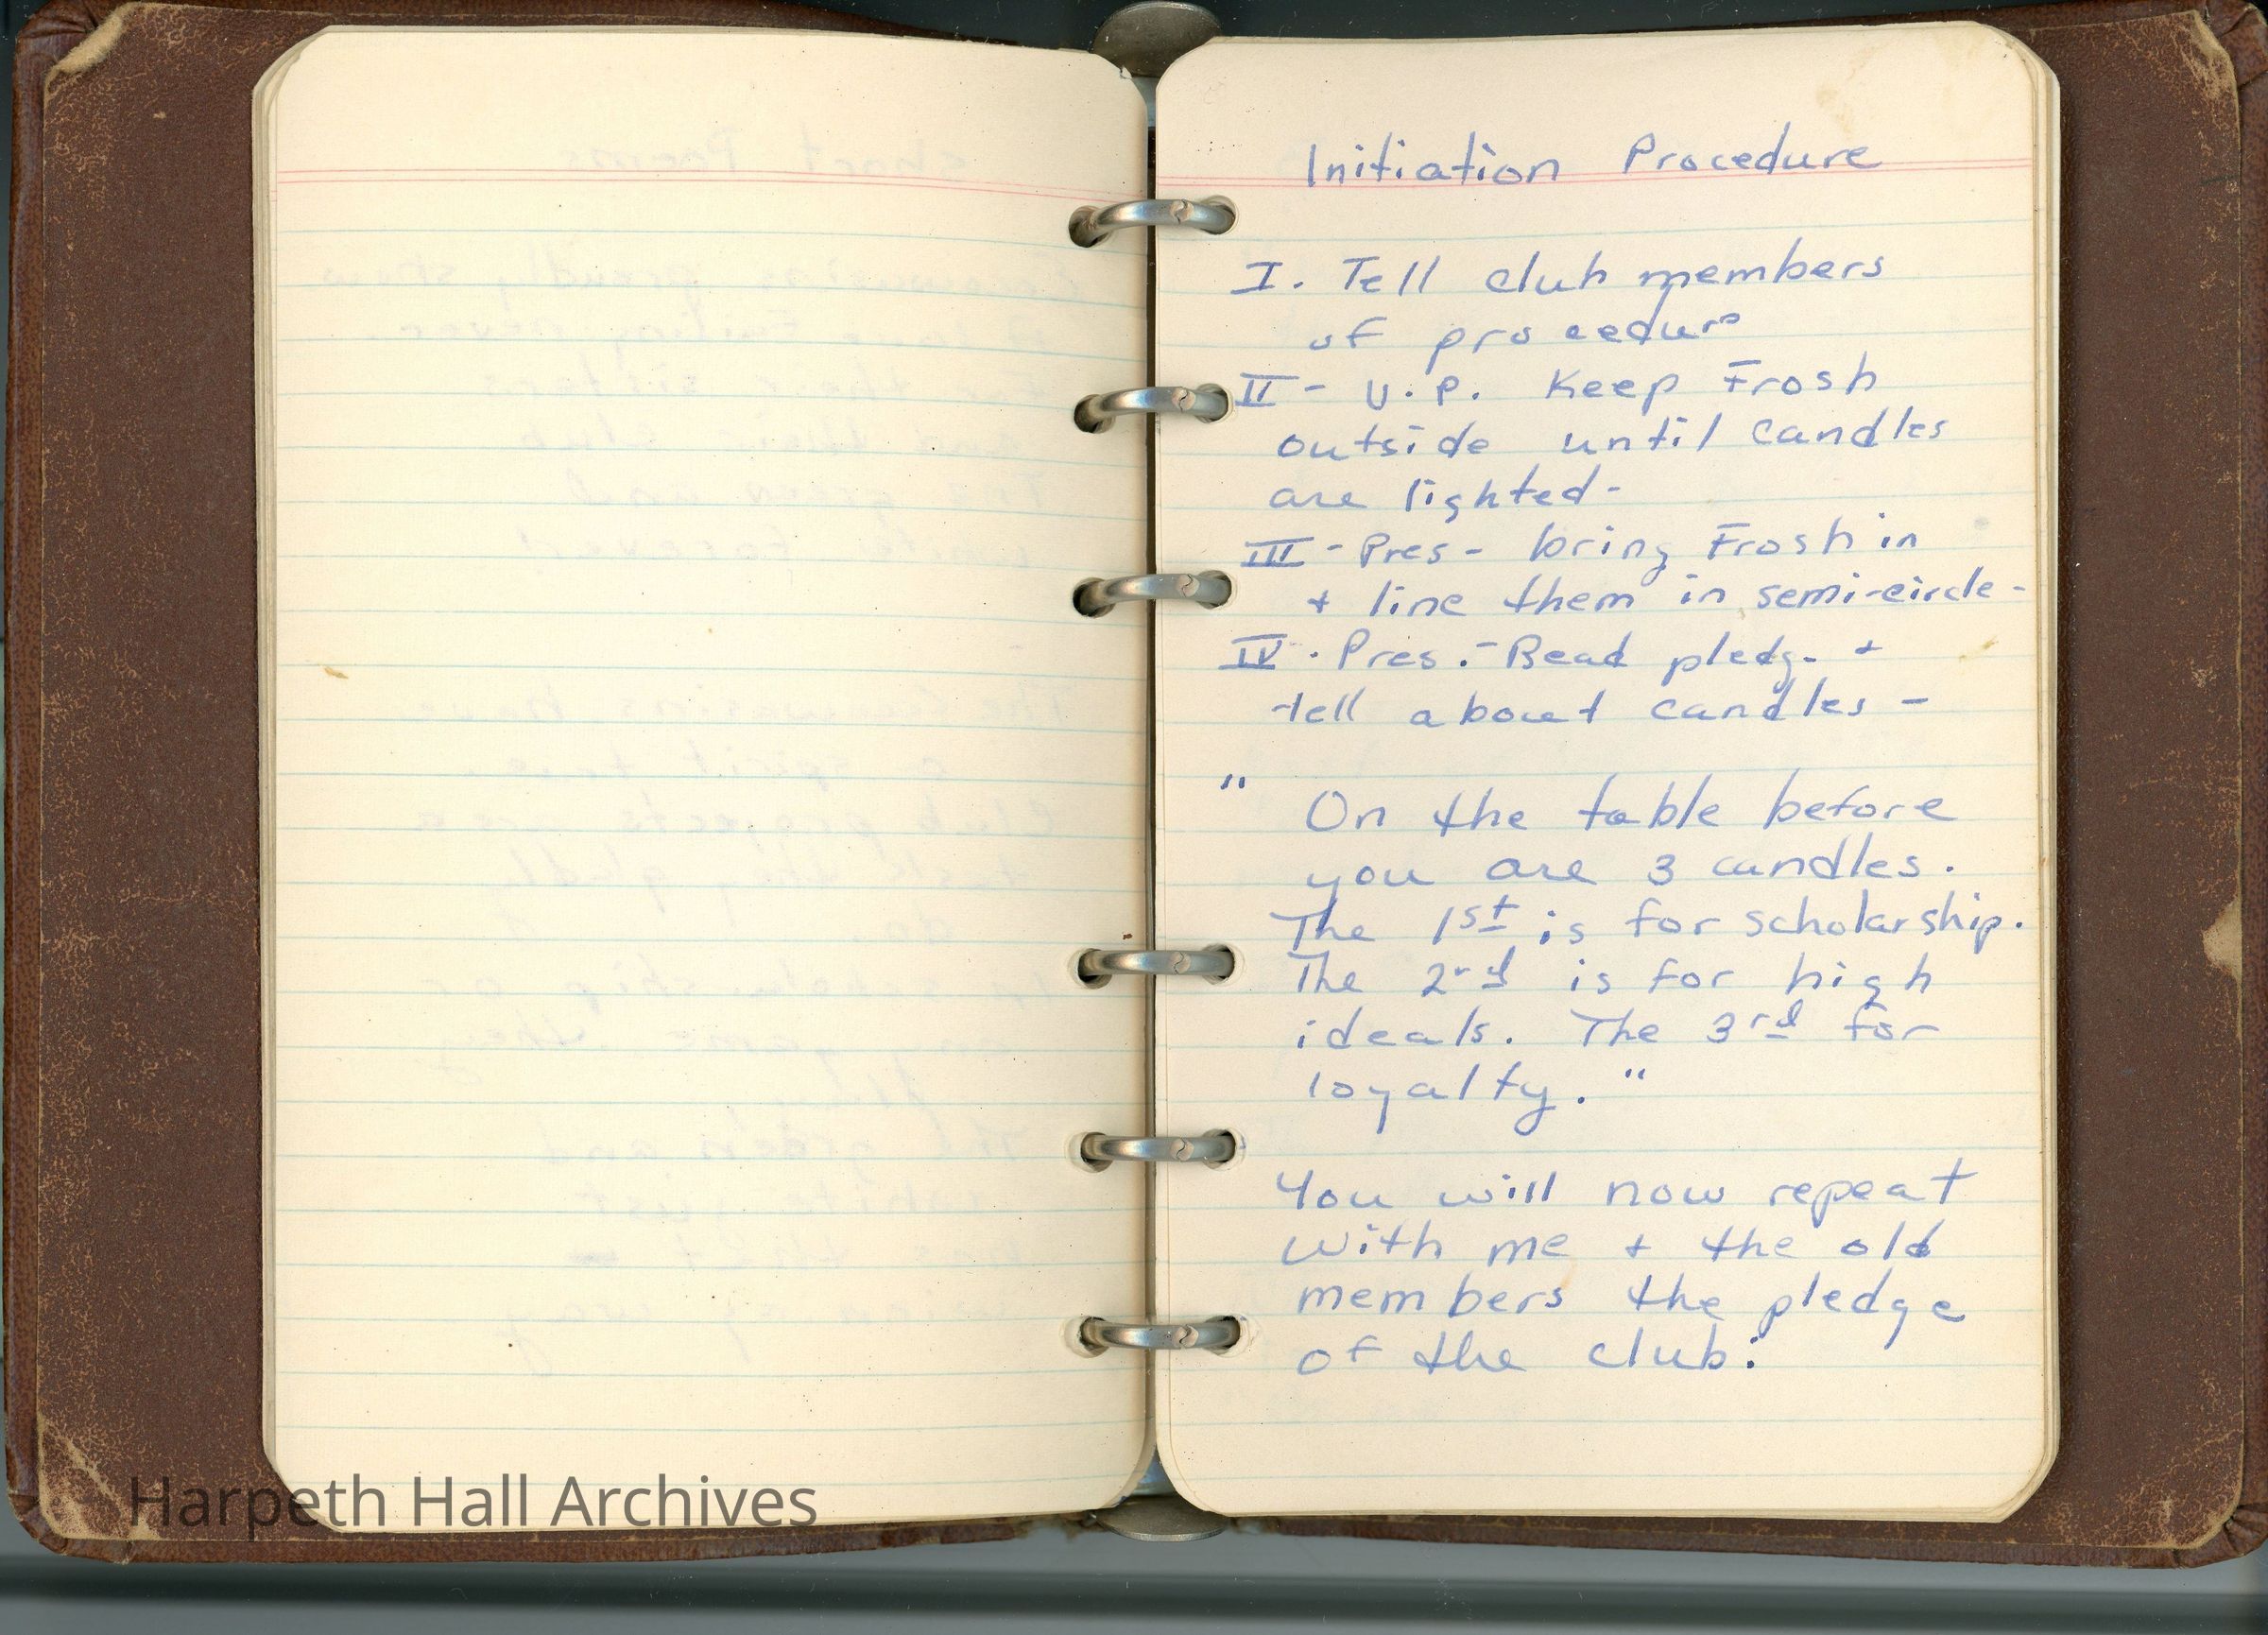 Initiation Procedure
I. Tell club members
of procedure
II - V.P. Keep Frosh
outside until candles
are lighted -
III - Pres - bring Frosh in
+ line them in semi-circle -
IV. Pres. - Read pledge +
tell about candles -
" On the table before
you are 3 candles.
The 1st is for scholarship.
The 2nd is for high
ideals. The 3rd for
loyalty. "
You will now repeat
with me + the old
members the pledge
of the club:
Harpeth Hall Archives